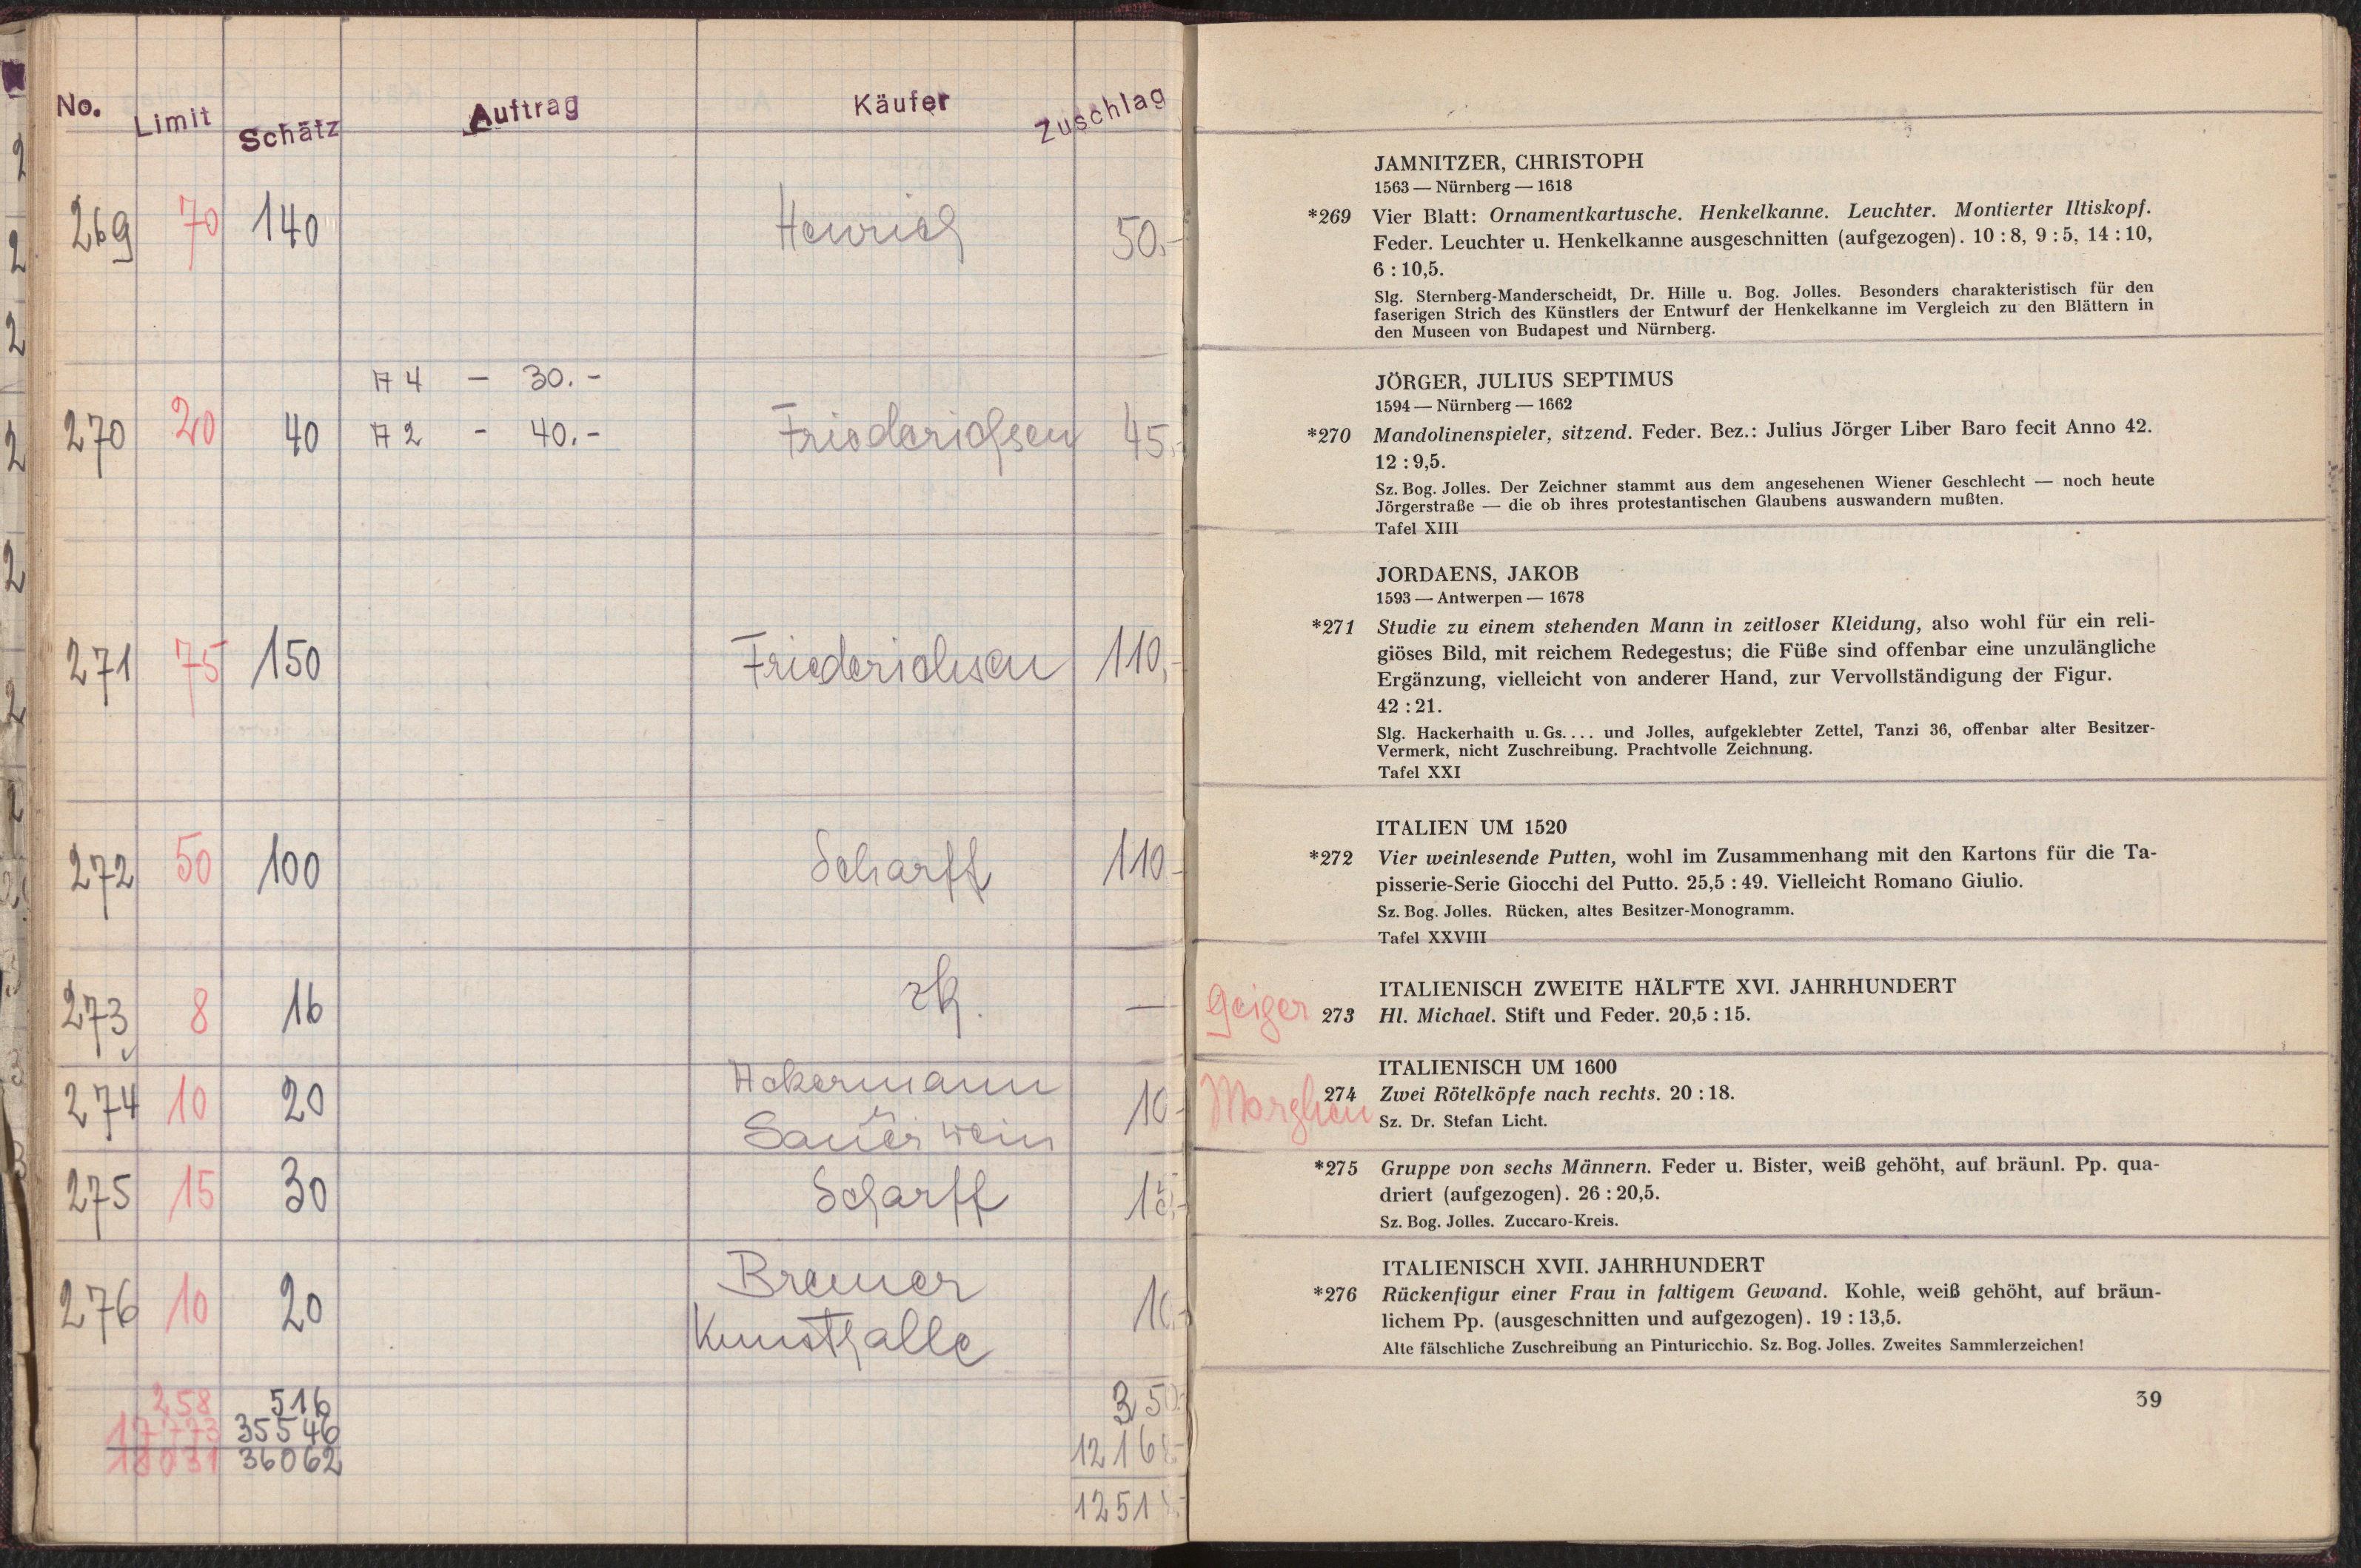 No. Limit Schätz Auftrag Käufer Zuschlag
269 70 140 Henrich 50.-
A 4 - 30.-
270 20 40 A 2 - 40.- Friederichsen 45.-
271 75 150 Friederichsen 110.-
272 50 100 Scharff 110.-
273 8 16 zk. —
274 10 20 Ackermann 10.-
Sauerwein
275 15 30 Scharff 15.-
276 10 20 Bremer 10.-
Kunsthalle
258 516 350
17773 35546 1216
18031 36062 1251
JAMNITZER, CHRISTOPH
1563 — Nürnberg — 1618
*269 Vier Blatt: Ornamentkartusche. Henkelkanne. Leuchter. Montierter Iltiskopf.
Feder. Leuchter u. Henkelkanne ausgeschnitten (aufgezogen). 10 : 8, 9 : 5, 14 : 10,
6 : 10,5.
Slg. Sternberg-Manderscheidt, Dr. Hille u. Bog. Jolles. Besonders charakteristisch für den
faserigen Strich des Künstlers der Entwurf der Henkelkanne im Vergleich zu den Blättern in
den Museen von Budapest und Nürnberg.
JÖRGER, JULIUS SEPTIMUS
1594 — Nürnberg — 1662
*270 Mandolinenspieler, sitzend. Feder. Bez.: Julius Jörger Liber Baro fecit Anno 42.
12 : 9,5.
Sz. Bog. Jolles. Der Zeichner stammt aus dem angesehenen Wiener Geschlecht — noch heute
Jörgerstraße — die ob ihres protestantischen Glaubens auswandern mußten.
Tafel XIII
JORDAENS, JAKOB
1593 — Antwerpen — 1678
*271 Studie zu einem stehenden Mann in zeitloser Kleidung, also wohl für ein reli-
giöses Bild, mit reichem Redegestus; die Füße sind offenbar eine unzulängliche
Ergänzung, vielleicht von anderer Hand, zur Vervollständigung der Figur.
42 : 21.
Slg. Hackerhaith u. Gs.... und Jolles, aufgeklebter Zettel, Tanzi 36, offenbar alter Besitzer-
Vermerk, nicht Zuschreibung. Prachtvolle Zeichnung.
Tafel XXI
ITALIEN UM 1520
*272 Vier weinlesende Putten, wohl im Zusammenhang mit den Kartons für die Ta-
pisserie-Serie Giocchi del Putto. 25,5 : 49. Vielleicht Romano Giulio.
Sz. Bog. Jolles. Rücken, altes Besitzer-Monogramm.
Tafel XXVIII
ITALIENISCH ZWEITE HÄLFTE XVI. JAHRHUNDERT
Geiger 273 Hl. Michael. Stift und Feder. 20,5 : 15.
ITALIENISCH UM 1600
Morghen 274 Zwei Rötelköpfe nach rechts. 20 : 18.
Sz. Dr. Stefan Licht.
*275 Gruppe von sechs Männern. Feder u. Bister, weiß gehöht, auf bräunl. Pp. qua-
driert (aufgezogen). 26 : 20,5.
Sz. Bog. Jolles. Zuccaro-Kreis.
ITALIENISCH XVII. JAHRHUNDERT
*276 Rückenfigur einer Frau in faltigem Gewand. Kohle, weiß gehöht, auf bräun-
lichem Pp. (ausgeschnitten und aufgezogen). 19 : 13,5.
Alte fälschliche Zuschreibung an Pinturicchio. Sz. Bog. Jolles. Zweites Sammlerzeichen!
39